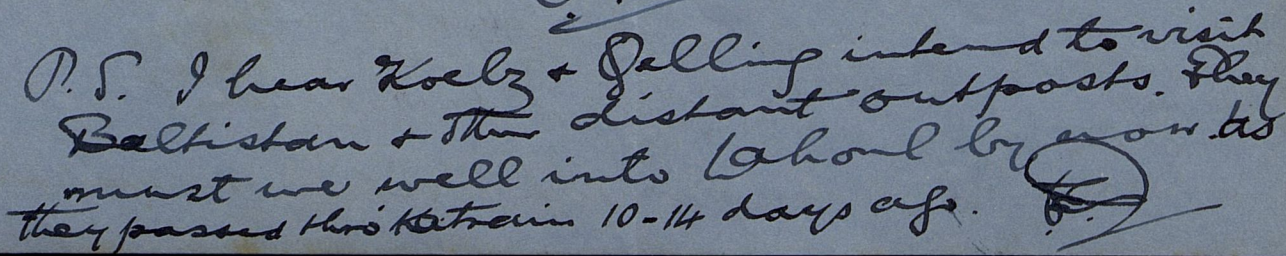 P.S. I hear Koelz + Gelling intend to visit
Baltistan + other distant outposts. They
must we well into Lahoul by now as
they passed thro' Katrain 10-14 days ago.